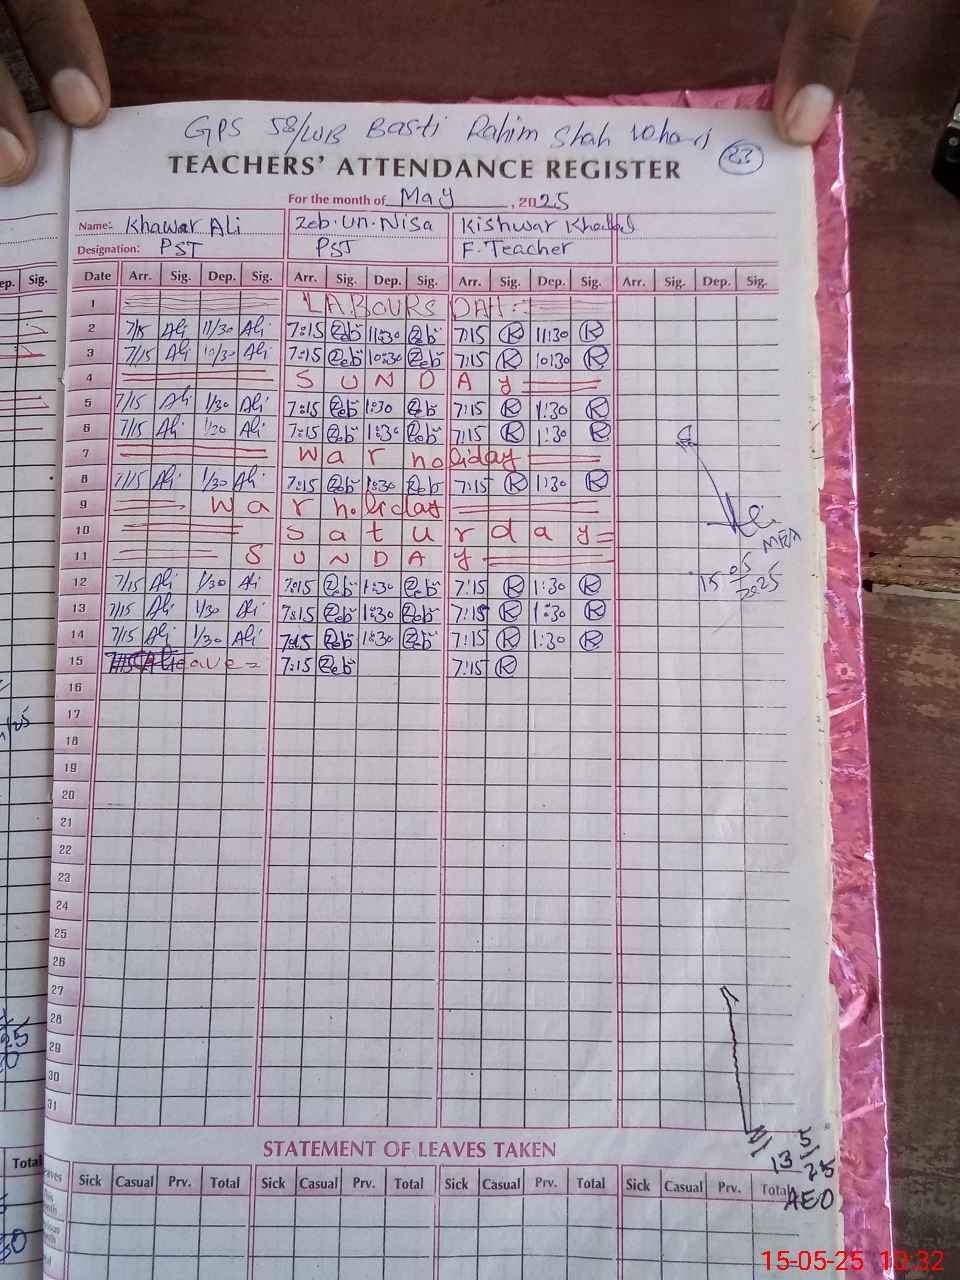 GPS 58/WB Basti Rahim Shah Vehari
TEACHERS' ATTENDANCE REGISTER 23
For the month of May, 2025
Name: Khawar Ali Zeb.Un.Nisa Kishwar
Designation: PST PST F.Teacher
Date Arr. Sig. Dep. Sig. Arr. Sig. Dep. Sig. Arr. Sig. Dep. Sig. Arr. Sig. Dep. Sig.
1 LABOURS DAY
2 7/15 Ali 11/30 Ali 7:15 Zeb 11:30 Zeb 7:15 K 11:30 K
3 7/15 Ali 10/30 Ali 7:15 Zeb 10:30 Zeb 7:15 K 10:30 K
4 SUNDAY
5 7/15 Ali 1/30 Ali 7:15 Zeb 1:30 Zeb 7:15 K 1:30 K
6 7/15 Ali 1/30 Ali 7:15 Zeb 1:30 Zeb 7:15 K 1:30 K
7 war holiday
8 7/15 Ali 1/30 Ali 7:15 Zeb 1:30 Zeb 7:15 K 1:30 K
9 war holiday
10 Saturday
11 SUNDAY
MEA
15 05 2025
12 7/15 Ali 1/30 Ali 7:15 Zeb 1:30 Zeb 7:15 K 1:30 K
13 7/15 Ali 1/30 Ali 7:15 Zeb 1:30 Zeb 7:15 K 1:30 K
14 7/15 Ali 1/30 Ali 7:15 Zeb 1:30 Zeb 7:15 K 1:30 K
15 leave 7:15 Zeb 7:15 K
16
17
18
19
20
21
22
23
24
25
26
27
28
29
30
31
STATEMENT OF LEAVES TAKEN
13 5/25
AEO
Sick Casual Prv. Total Sick Casual Prv. Total Sick Casual Prv. Total Sick Casual Prv. Total
15-05-25 10:32